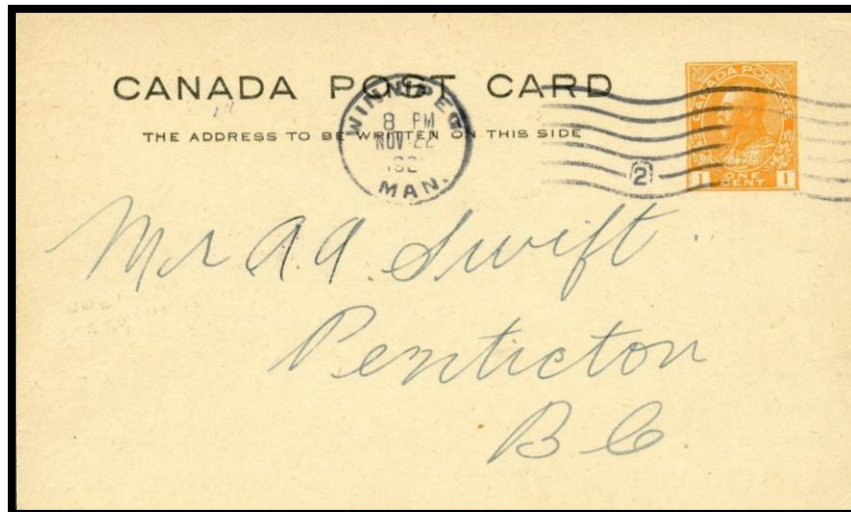 CANADA POST CARD
THE ADDRESS TO BE WRITTEN ON THIS SIDE
WINNIPEG
8 PM
NOV 22
MAN.
2
CANADA POSTAGE
1 ONE CENT 1
Mr A.A. Swift
Penticton
B C.